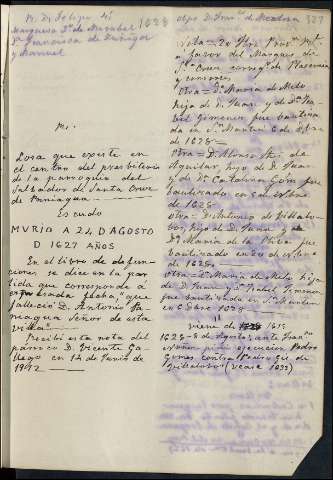 M. D. Felipe III
Marquesa Dª de Mirabel
Dª Francisca de Zúñiga
y Manuel
1628
M.
Losa que existe en
el cantón del presbiterio
de la parroquia del
Salvador de Santa Cruz
de Paniagua.
Escudo
MVRIO A 24 D AGOSTO
D 1627 AÑOS
En el libro de defun-
ciones se dice en la par-
tida que corresponde á
expresada fecha, "que
falleció D. Antonio Pa-
niagua Señor de esta
villa".
Recibí esta nota del
párroco D. Vicente Ga-
llego en 14 de Junio de
1912
obpo D. Franco de Mendoza
327
a favor del Marqués de
Sta Cruz correg. de Plasencia
y errores
Otra = Dª María de Melo
hija de D. Juan y de Dª Ysa-
bel Gimenez fue bautiza-
da en Sn Martin 6 de Obre
de 1628
Otra = D. Alonso de
Aguilar hijo de D. Juan
y de Dª Catalina fue
bautizado en de Obre
de 1628
Otra = D. Antonio de Villalo-
bos, hijo de D. Juan y de
Dª María de la fue
bautizado en 20 de
de 1628
Otra = Dª María de Melo hija
de D. Juan y Dª Ysabel Gimenez
fue bautizada en Sn Martin
en 6 Obre 1628
viene de 1615
1628 - 8 de Agosto, ante Fran.
ejecución Pedro
Gomez contra Pedro Gil de
Villalobos (vease 1633)